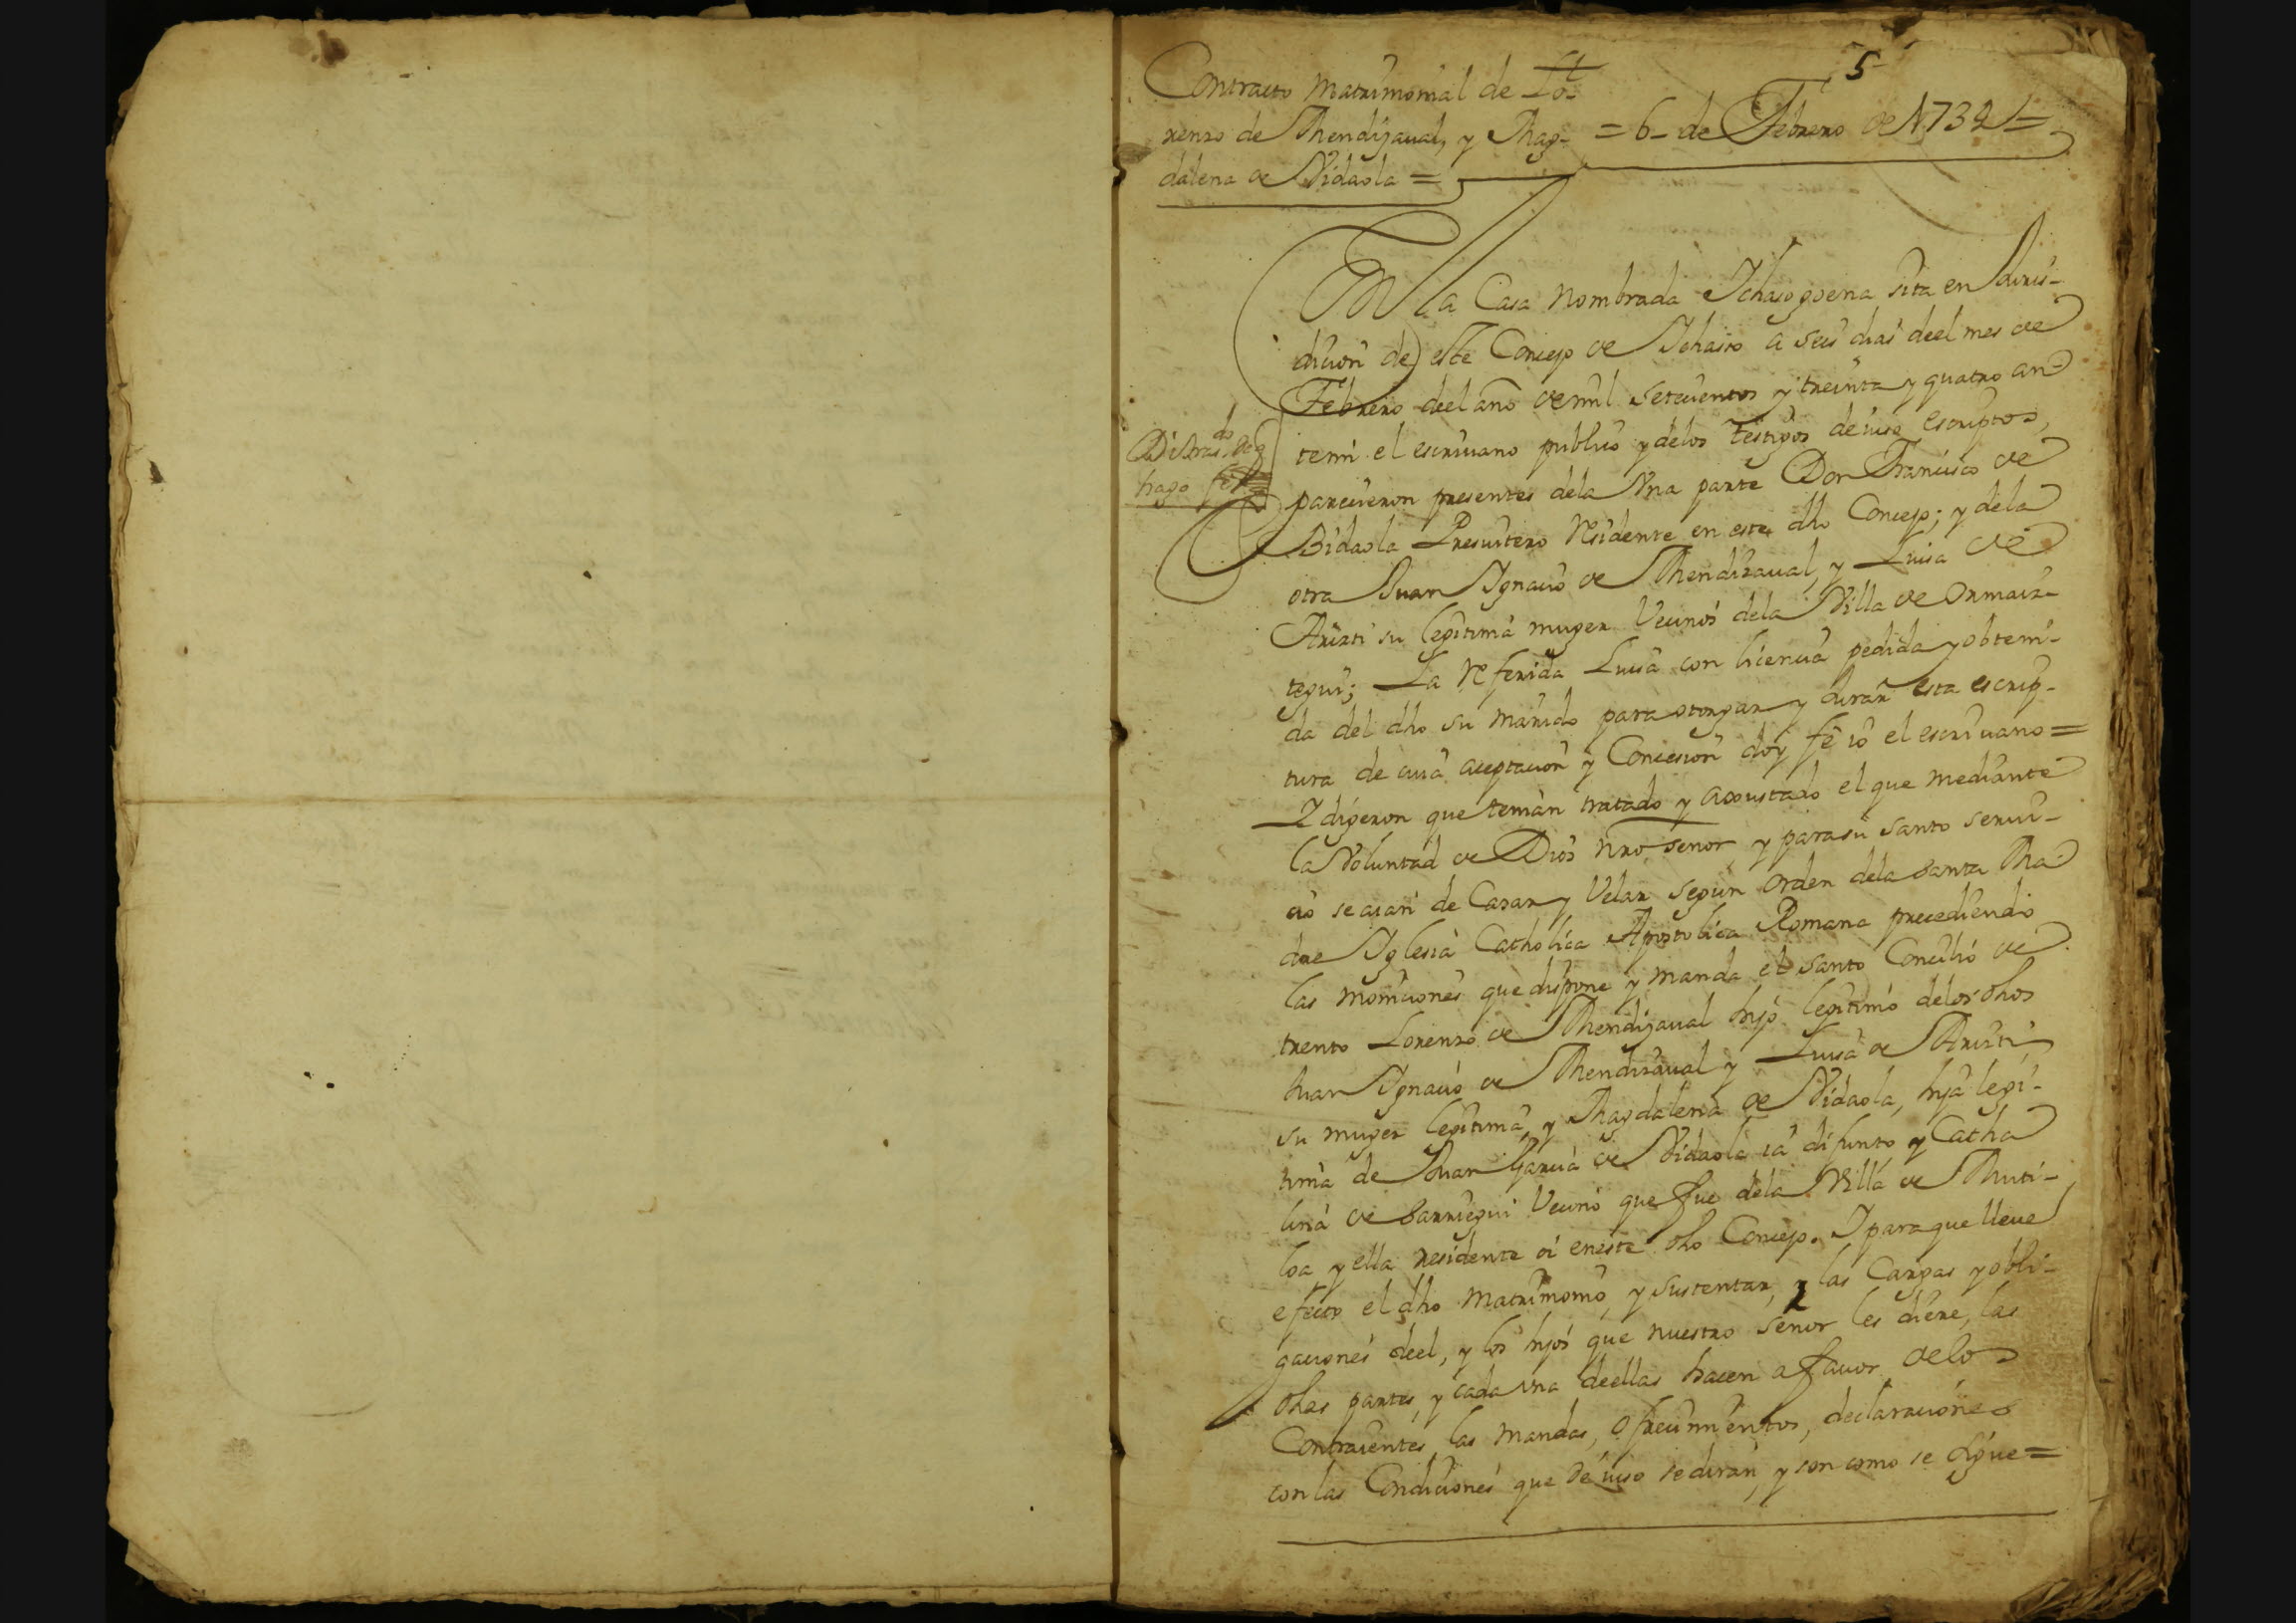 5
Contracto Matrimonial de Lo-
renzo de Mendizaual, y Mag-
dalena de Vidaola =
= 6 - de Febrero de 1734 =
En la Casa nombrada Ichasogoena sita en Juris-
dicion de este Concejo de Ichaso a seis dias deel mes de
Febrero deel año de mil setecientos y treinta y quatro an-
temi el escriuano publico y delos testigos de iuso escriptos,
parecieron presentes dela Vna parte Don Francisco de
Bidaola Presuitero residente en este dho Concejo; y dela
otra Juan Ignacio de Mendizaual, y Luisa de
Arizti su legitima muger Vecinos dela Villa de Ormaiz-
tegui; La referida Luisa con licencia pedida y obteni-
da del dho su marido para otorgar y Jurar esta escrip-
tura de cuia aceptacion y Concesion doy fe io el escriuano =
I digeron que tenian tratado y axustado el que mediante
la Voluntad de Dios nro señor y para su santo serui-
cio se aian de Casar y Velar segun Orden dela santa Ma-
dre Iglesia Catholica Apostolica Romana precediendo
las moniciones que dispone y manda el santo Concilio de
trento Lorenzo de Mendizaual hijo legitimo delos dhos
Juan Ignacio de Mendizaual y Luisa de Arizti
su muger legitima, y Magdalena de Vidaola, hija legi-
tima de Juan Garcia de Vidaola ia difunto, y Catha
lina de Barriegui Vecino que fue dela Villa de Muti-
loa y ella residente oi eneste dho Concejo. I para que lleue
efecto el dho Matrimonio, y sustentar, y las Cargas y obli-
gaciones deel, y los hijos que nuestro señor les diere, las
dhas partes, y cada vna deellas hacen a fauor de los
Contraientes, las mandas, ofrecimientos, declaraciones
con las Condiciones que de iuso se diran, y son como se sigue =
hago fee